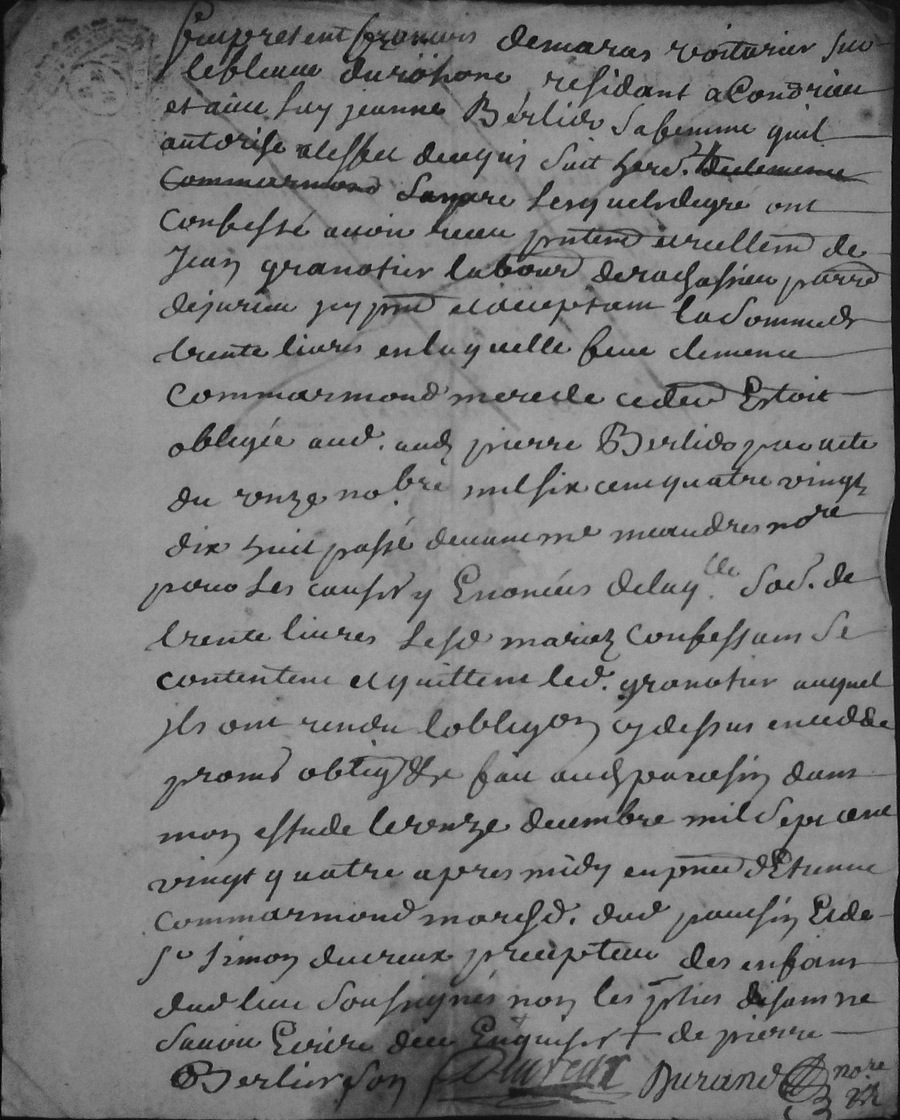 fut present francois demaras voiturier sur
le fleuve du rhone residant a Condrieu
et avec luy jeanne Berlier sa femme quil
autorise a leffet de ce qui suit hered. de clemence
Commarmond sa mere lesquels de gre ont
Confessé avoir receu pntem et reellem de
Jean granotier labour de parr
de jurieu icy pnt et acceptant la somme de
trente livres en laquelle feue clemence
Commarmond mere de estoit
obligée aud. pierre Berlier par acte
du onze nobre mil six cent quatre vingt
dix huit passé devant me meandre nore
pour les causes y Enoncées de laqlle sod. de
trente livres lesd mariez Confessant se
contentent et quittent led. granotier auquel
ils ont rendu lobligon cy dessus
promis oblig &c fait aud paresin dans
mon estude le onze decembre mil sept cent
vingt quatre apres midy en pnce dEtienne
Commarmond march. dud et de
sr simon ducreux precepteur des enfans
dud lieu soussignés non les pties
savoir Ecrire de ce Enquis et de pierre
Berlier son Ducreux Durand nore